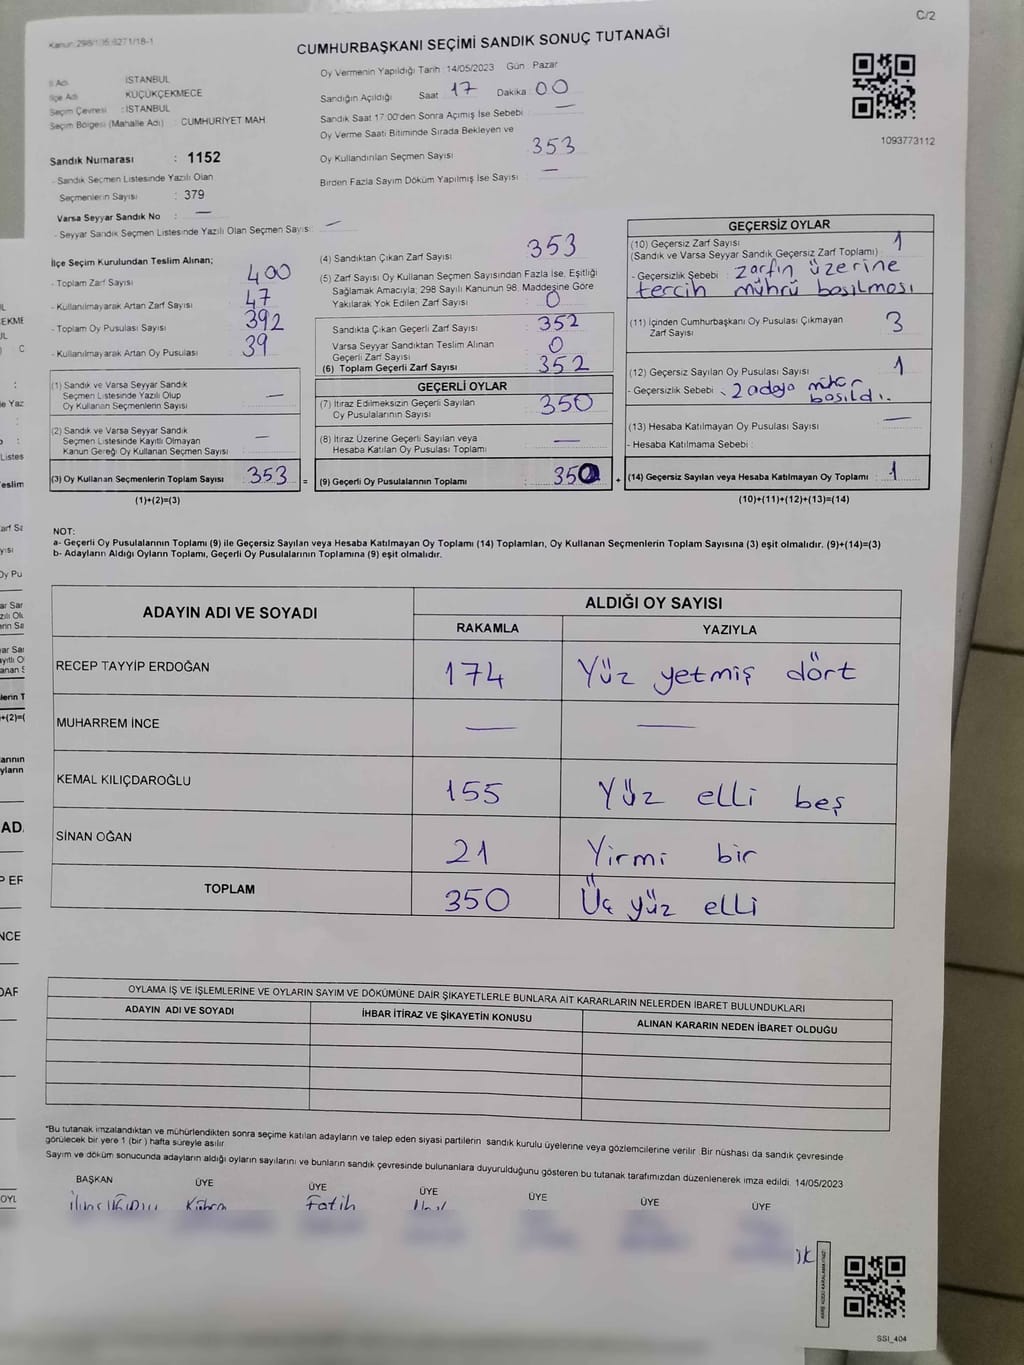 C/2
Kanun: 298/135;6271/18-1
CUMHURBAŞKANI SEÇİMİ SANDIK SONUÇ TUTANAĞI
İl Adı İSTANBUL
İlçe Adı KÜÇÜKÇEKMECE
Seçim Çevresi : İSTANBUL
Seçim Bölgesi (Mahalle Adı) : CUMHURİYET MAH
Sandık Numarası : 1152
- Sandık Seçmen Listesinde Yazılı Olan
Seçmenlerin Sayısı : 379
Varsa Seyyar Sandık No : —
- Seyyar Sandık Seçmen Listesinde Yazılı Olan Seçmen Sayısı: —
Oy Vermenin Yapıldığı Tarih : 14/05/2023 Gün : Pazar
Sandığın Açıldığı Saat : 17 Dakika : 00
Sandık Saat 17:00'den Sonra Açımış İse Sebebi : —
Oy Verme Saati Bitiminde Sırada Bekleyen ve
Oy Kullandırılan Seçmen Sayısı : 353
Birden Fazla Sayım Döküm Yapılmış İse Sayısı : —
1093773112
İlçe Seçim Kurulundan Teslim Alınan;
- Toplam Zarf Sayısı : 400
- Kullanılmayarak Artan Zarf Sayısı : 47
- Toplam Oy Pusulası Sayısı : 392
- Kullanılmayarak Artan Oy Pusulası : 39
(1) Sandık ve Varsa Seyyar Sandık
Seçmen Listesinde Yazılı Olup
Oy Kullanan Seçmenlerin Sayısı : —
(2) Sandık ve Varsa Seyyar Sandık
Seçmen Listesinde Kayıtlı Olmayan
Kanun Gereği Oy Kullanan Seçmen Sayısı : —
(3) Oy Kullanan Seçmenlerin Toplam Sayısı : 353 =
(1)+(2)=(3)
(4) Sandıktan Çıkan Zarf Sayısı : 353
(5) Zarf Sayısı Oy Kullanan Seçmen Sayısından Fazla İse, Eşitliği
Sağlamak Amacıyla; 298 Sayılı Kanunun 98. Maddesine Göre
Yakılarak Yok Edilen Zarf Sayısı : 0
Sandıkta Çıkan Geçerli Zarf Sayısı : 352
Varsa Seyyar Sandıktan Teslim Alınan
Geçerli Zarf Sayısı : 0
(6) Toplam Geçerli Zarf Sayısı : 352
GEÇERLİ OYLAR
(7) İtiraz Edilmeksizin Geçerli Sayılan
Oy Pusulalarının Sayısı : 350
(8) İtiraz Üzerine Geçerli Sayılan veya
Hesaba Katılan Oy Pusulası Toplamı : —
(9) Geçerli Oy Pusulalarının Toplamı : 350 +
GEÇERSİZ OYLAR
(10) Geçersiz Zarf Sayısı : 1
(Sandık ve Varsa Seyyar Sandık Geçersiz Zarf Toplamı)
- Geçersizlik Sebebi : zarfın üzerine
tercih mührü basılması
(11) İçinden Cumhurbaşkanı Oy Pusulası Çıkmayan
Zarf Sayısı : 3
(12) Geçersiz Sayılan Oy Pusulası Sayısı : 1
- Geçersizlik Sebebi : 2 adaya
basıldı.
(13) Hesaba Katılmayan Oy Pusulası Sayısı : —
- Hesaba Katılmama Sebebi :
(14) Geçersiz Sayılan veya Hesaba Katılmayan Oy Toplamı : 1
(10)+(11)+(12)+(13)=(14)
NOT:
a- Geçerli Oy Pusulalarının Toplamı (9) ile Geçersiz Sayılan veya Hesaba Katılmayan Oy Toplamı (14) Toplamları, Oy Kullanan Seçmenlerin Toplam Sayısına (3) eşit olmalıdır. (9)+(14)=(3)
b- Adayların Aldığı Oyların Toplamı, Geçerli Oy Pusulalarının Toplamına (9) eşit olmalıdır.
ADAYIN ADI VE SOYADI ALDIĞI OY SAYISI
RAKAMLA YAZIYLA
RECEP TAYYİP ERDOĞAN 174 Yüz yetmiş dört
MUHARREM İNCE — —
KEMAL KILIÇDAROĞLU 155 Yüz elli beş
SİNAN OĞAN 21 Yirmi bir
TOPLAM 350 Üç yüz elli
OYLAMA İŞ VE İŞLEMLERİNE VE OYLARIN SAYIM VE DÖKÜMÜNE DAİR ŞİKAYETLERLE BUNLARA AİT KARARLARIN NELERDEN İBARET BULUNDUKLARI
ADAYIN ADI VE SOYADI İHBAR İTİRAZ VE ŞİKAYETİN KONUSU ALINAN KARARIN NEDEN İBARET OLDUĞU
*Bu tutanak imzalandıktan ve mühürlendikten sonra seçime katılan adayların ve talep eden siyasi partilerin sandık kurulu üyelerine veya gözlemcilerine verilir. Bir nüshası da sandık çevresinde
görülecek bir yere 1 (bir) hafta süreyle asılır.
Sayım ve döküm sonucunda adayların aldığı oyların sayılarını ve bunların sandık çevresinde bulunanlara duyurulduğunu gösteren bu tutanak tarafımızdan düzenlenerek imza edildi. 14/05/2023
BAŞKAN ÜYE ÜYE ÜYE ÜYE ÜYE ÜYE
Kübra Fatih
SSI_404